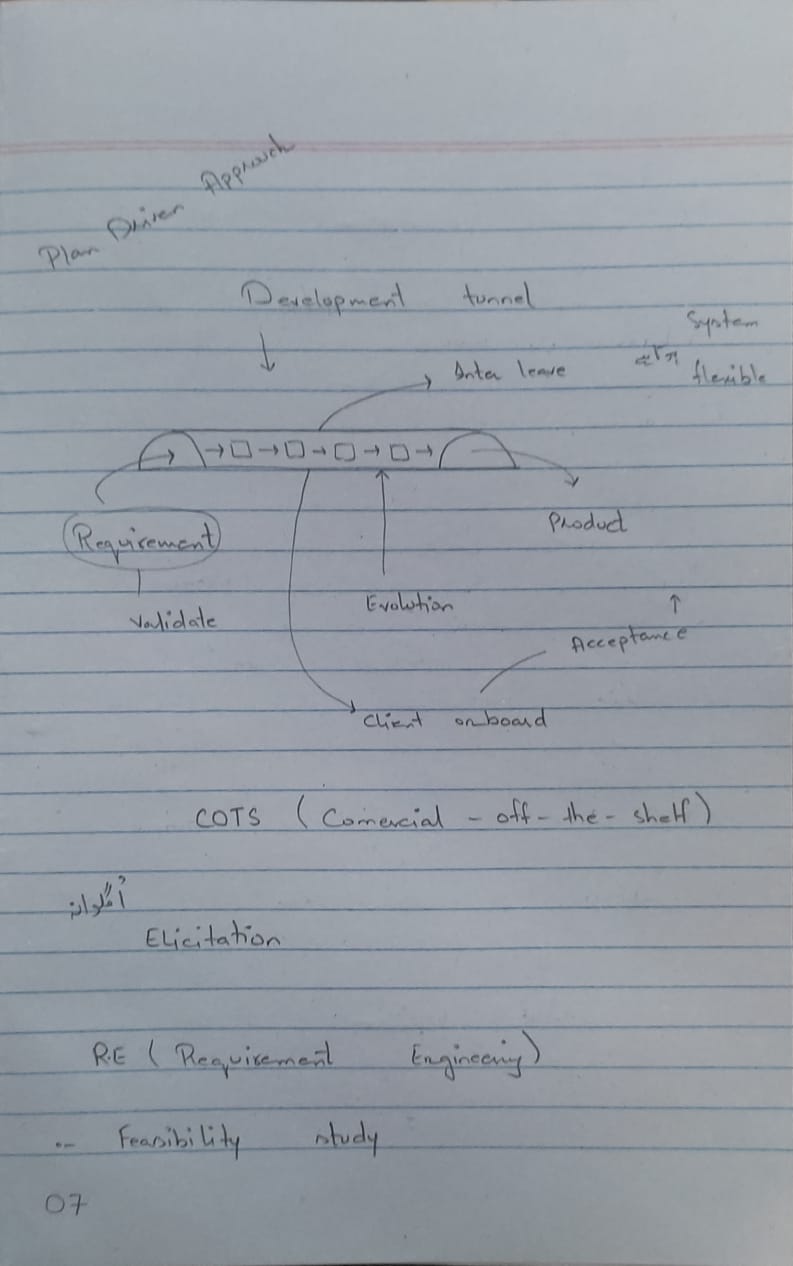 Plan Driven Approach
Development tunnel
System
flexible
Inter leave
Product
Requirement
Validate
Evolution
Acceptance
Client onboard
COTS (Comercial - off - the - shelf)
اُگلوانا
Elicitation
R.E (Requirement Engineering)
Feasibility study
07